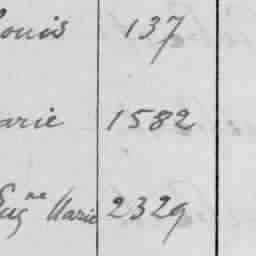 Louis 137
Marie 1582
Eug.ne Marie 2329